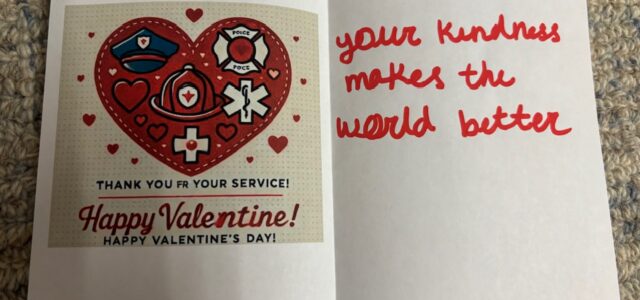 POLCE
FOCE
THANK YOU FR YOUR SERVICE!
Happy Valentine!
HAPPY VALENTINE'S DAY!
your kindness
makes the
world better